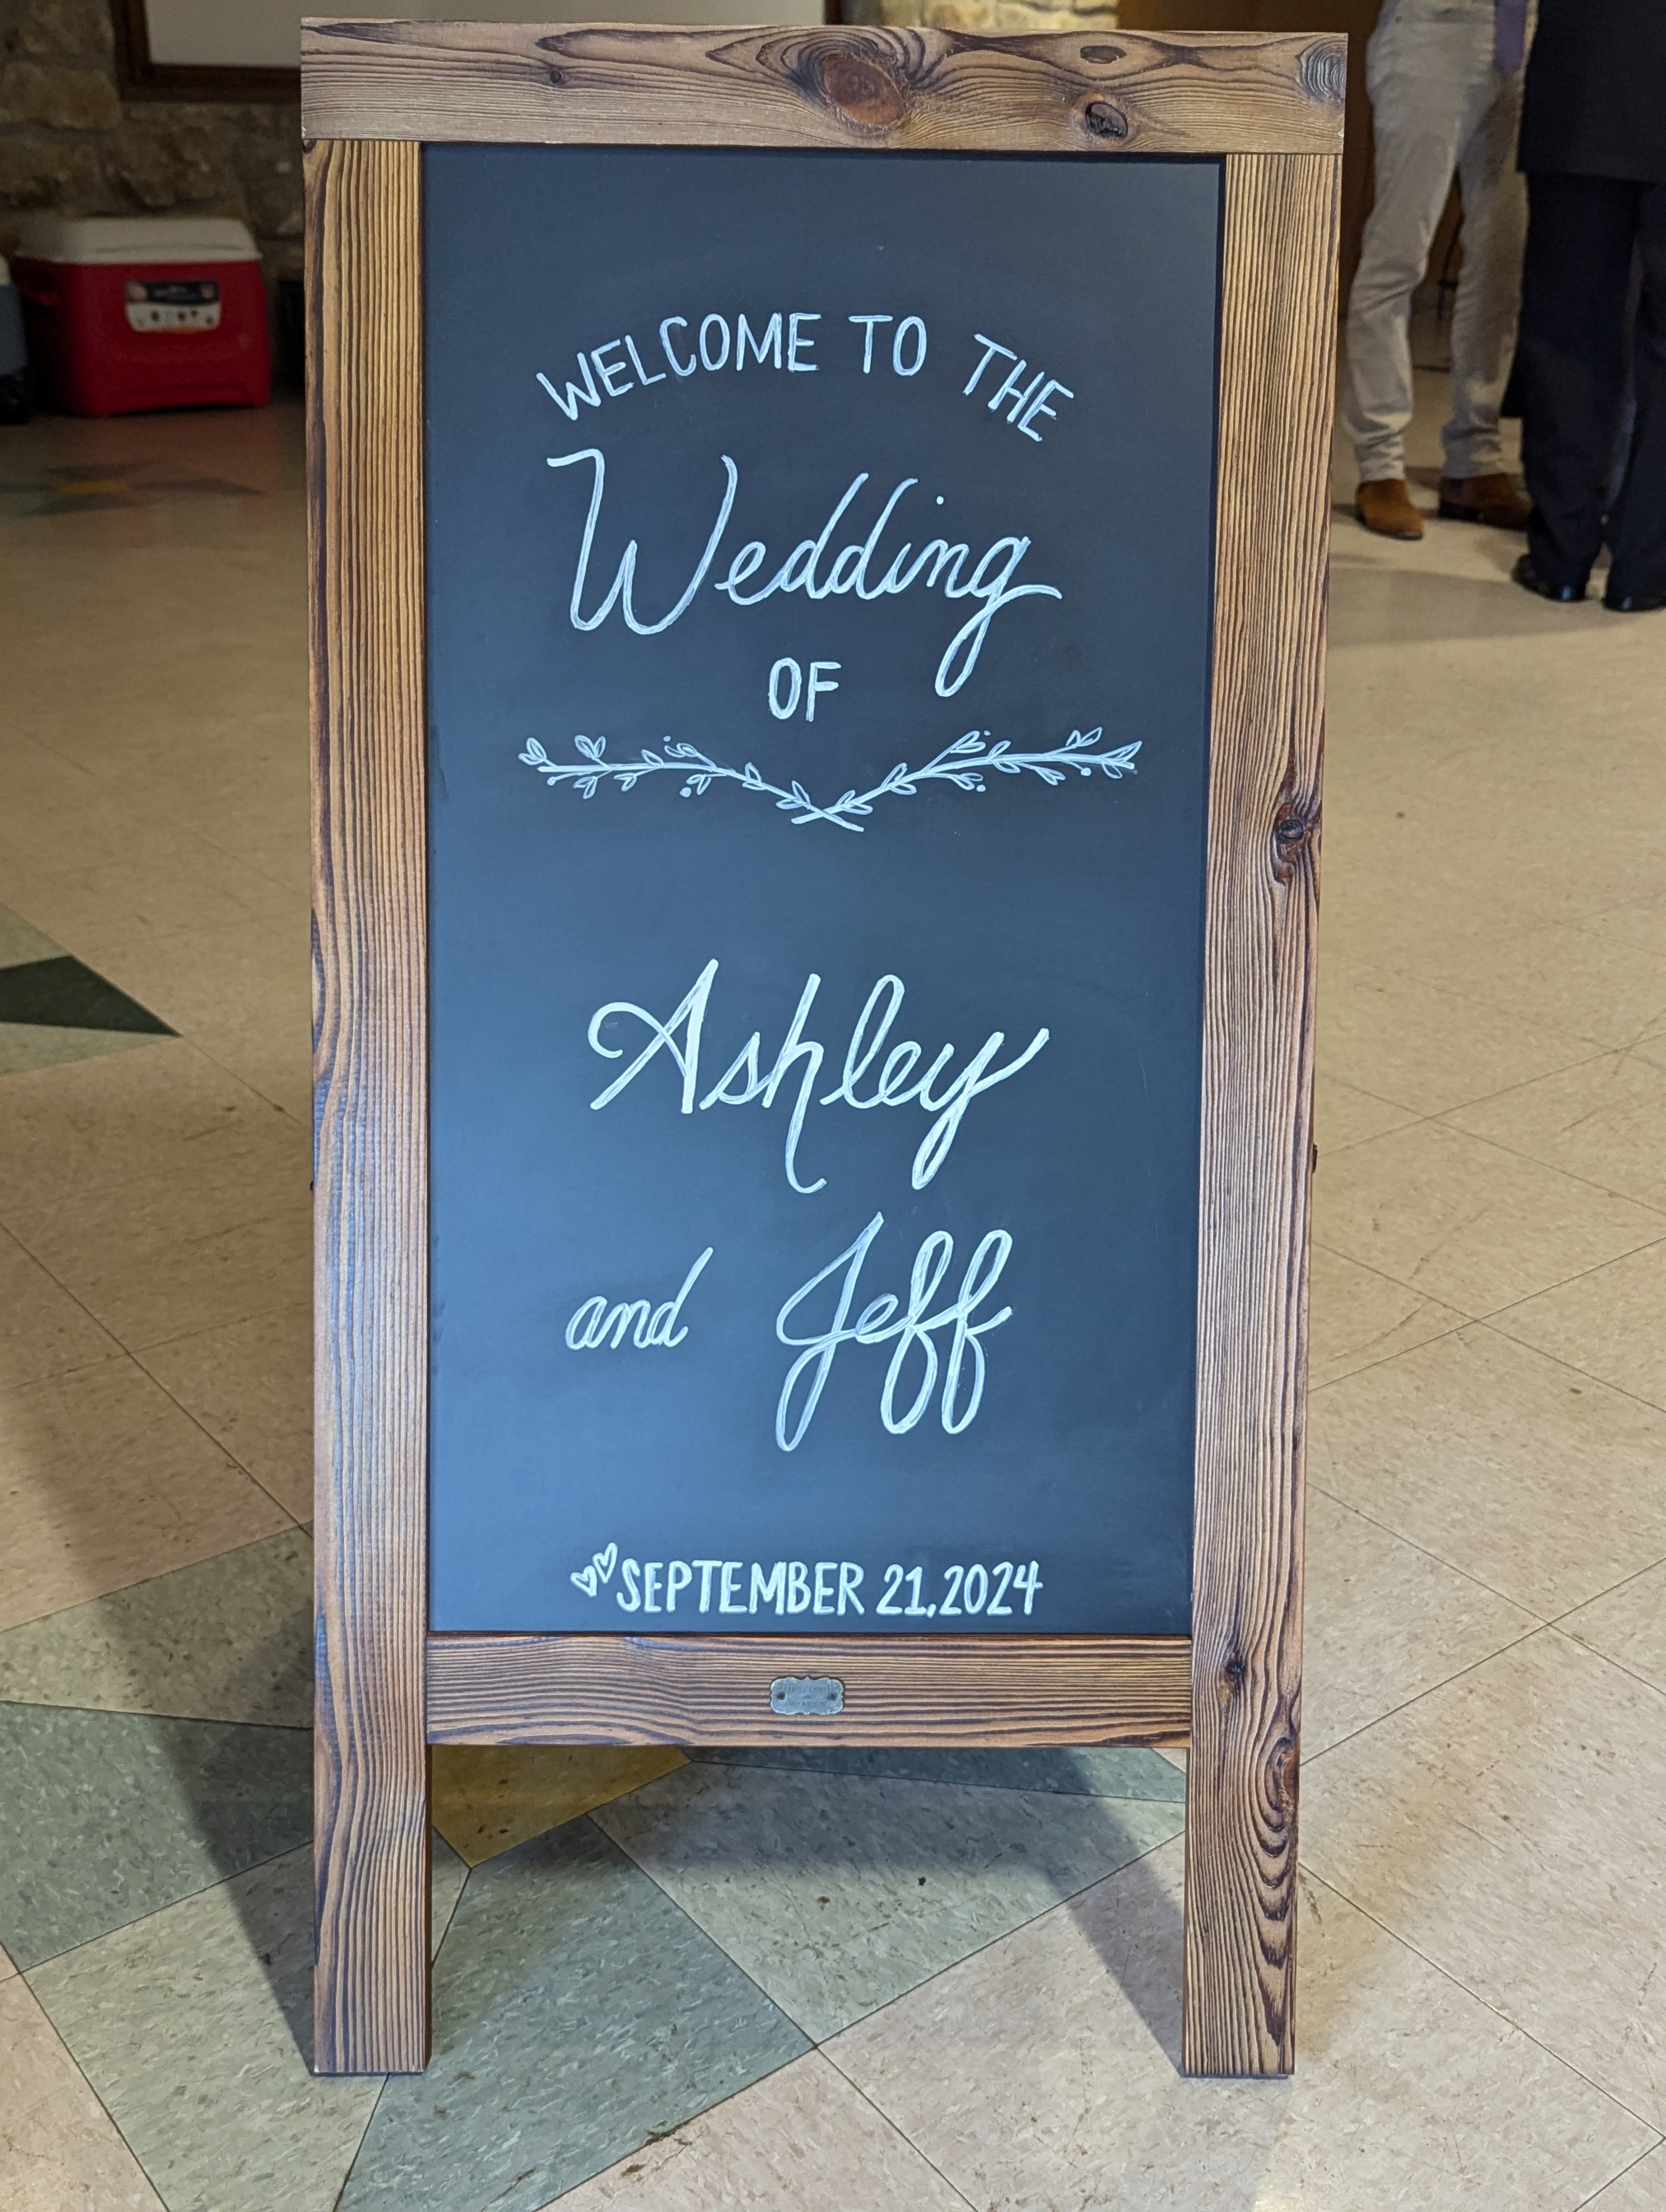 WELCOME TO THE
Wedding
OF
Ashley
and Jeff
SEPTEMBER 21, 2024